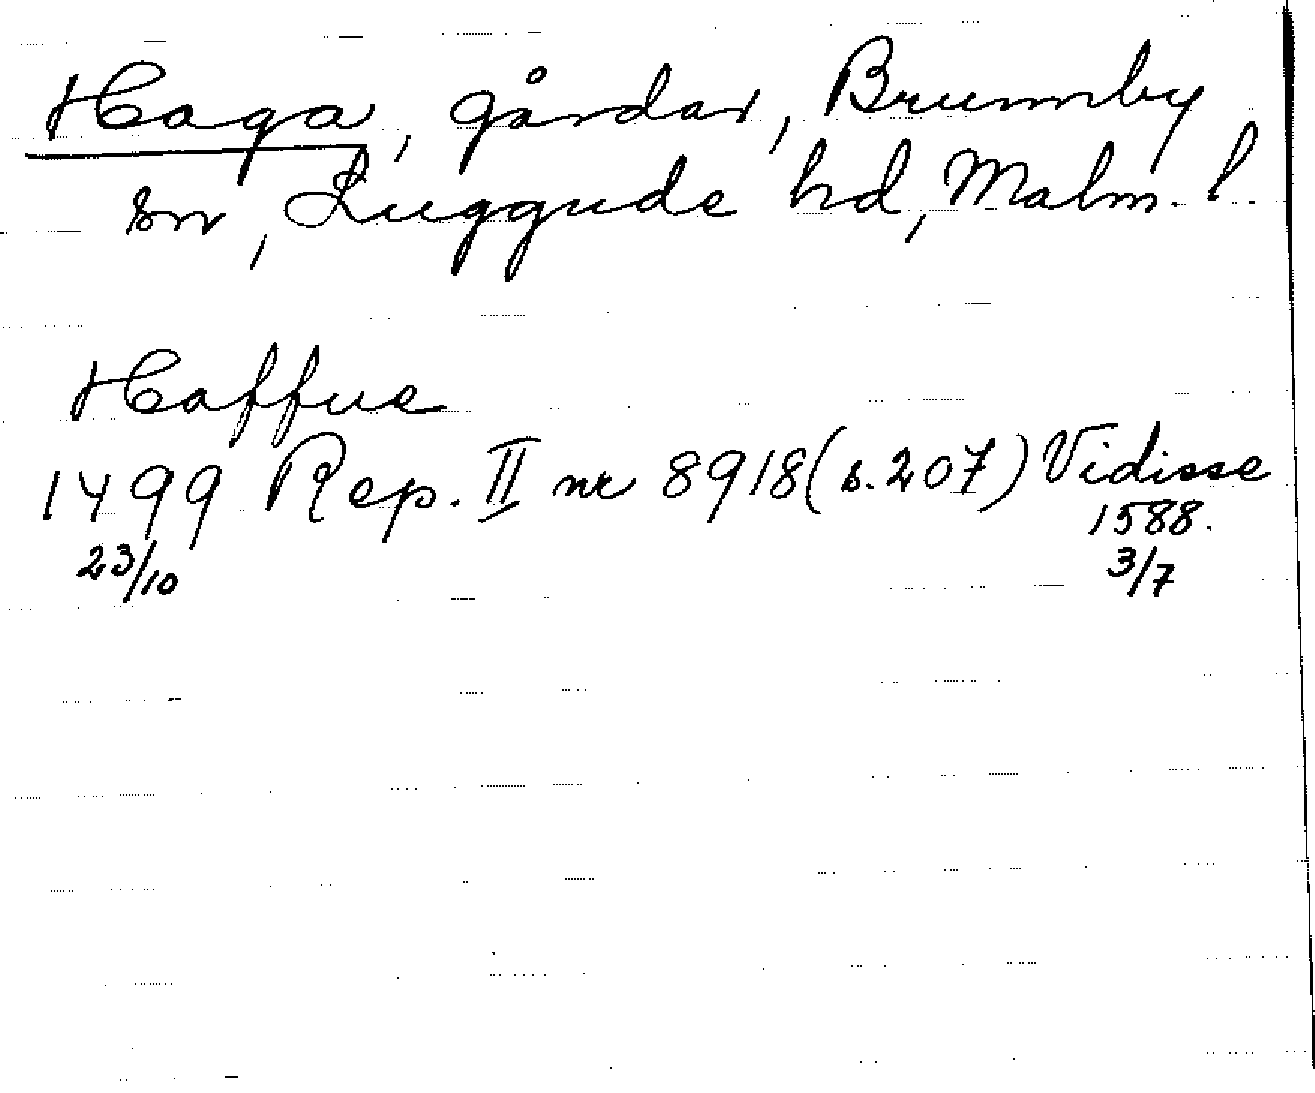 Haga, gårdar, Brunnby
sn, Luggude hd, Malm. l.
Haffue
1499 Rep. II nr 8918 (s. 207) Vidisse
1588.
23/10 3/7